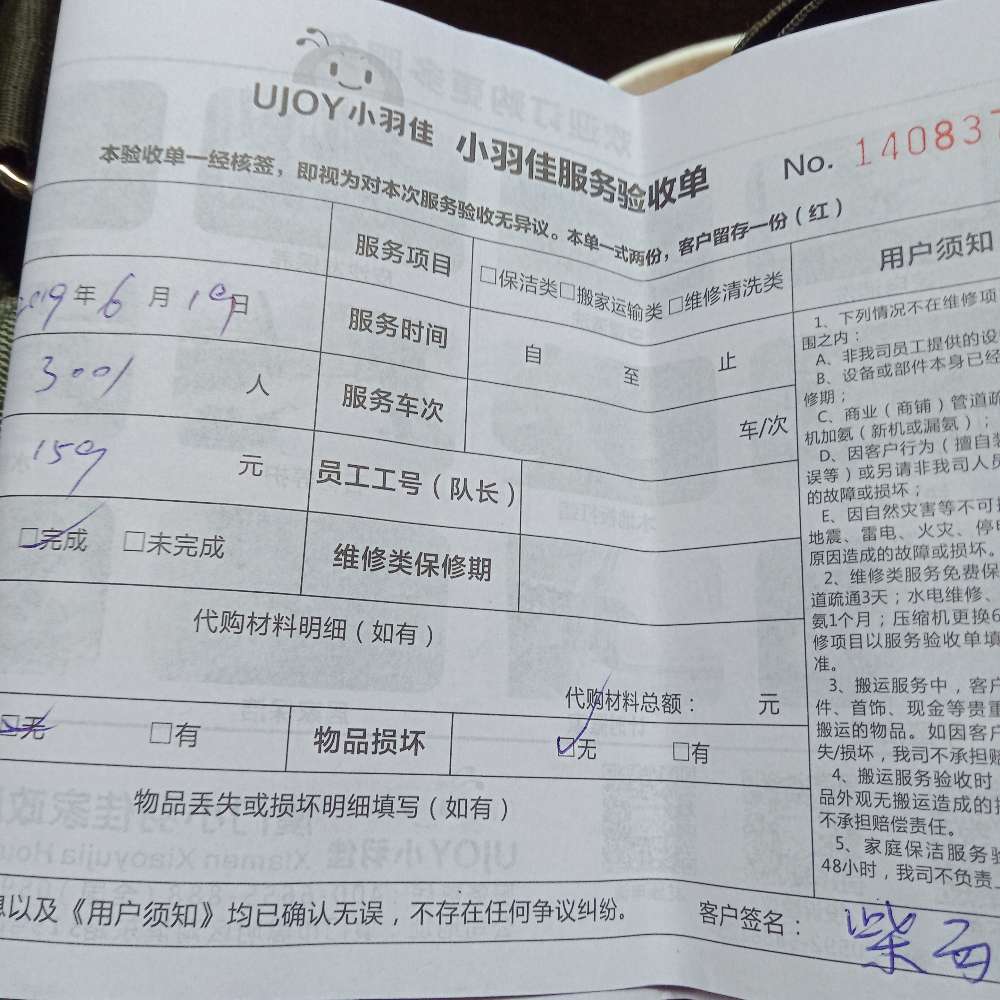 UJOY小羽佳 小羽佳服务验收单 No. 140837
本验收单一经核签，即视为对本次服务验收无异议。本单一式两份，客户留存一份（红）
服务项目 □保洁类□搬家运输类□维修清洗类
2019年6月19日 服务时间 自 至 止
3001 人 服务车次 车/次
159 元 员工工号（队长）
□完成 □未完成 维修类保修期
代购材料明细（如有）
代购材料总额： 元
□无 □有 物品损坏 □无 □有
物品丢失或损坏明细填写（如有）
以及《用户须知》均已确认无误，不存在任何争议纠纷。 客户签名：柴
用户须知
1、下列情况不在维修项
围之内：
A、非我司员工提供的设
B、设备或部件本身已经
修期；
C、商业（商铺）管道疏
机加氨（新机或漏氨）；
D、因客户行为（擅自
误等）或另请非我司人员
的故障或损坏；
E、因自然灾害等不可
地震、雷电、火灾、停
原因造成的故障或损坏。
2、维修类服务免费保
道疏通3天；水电维修、
氨1个月；压缩机更换6
修项目以服务验收单填
准。
3、搬运服务中，客户
件、首饰、现金等贵重
搬运的物品。如因客户
失/损坏，我司不承担赔
4、搬运服务验收时
品外观无搬运造成的
不承担赔偿责任。
5、家庭保洁服务验
48小时，我司不负责